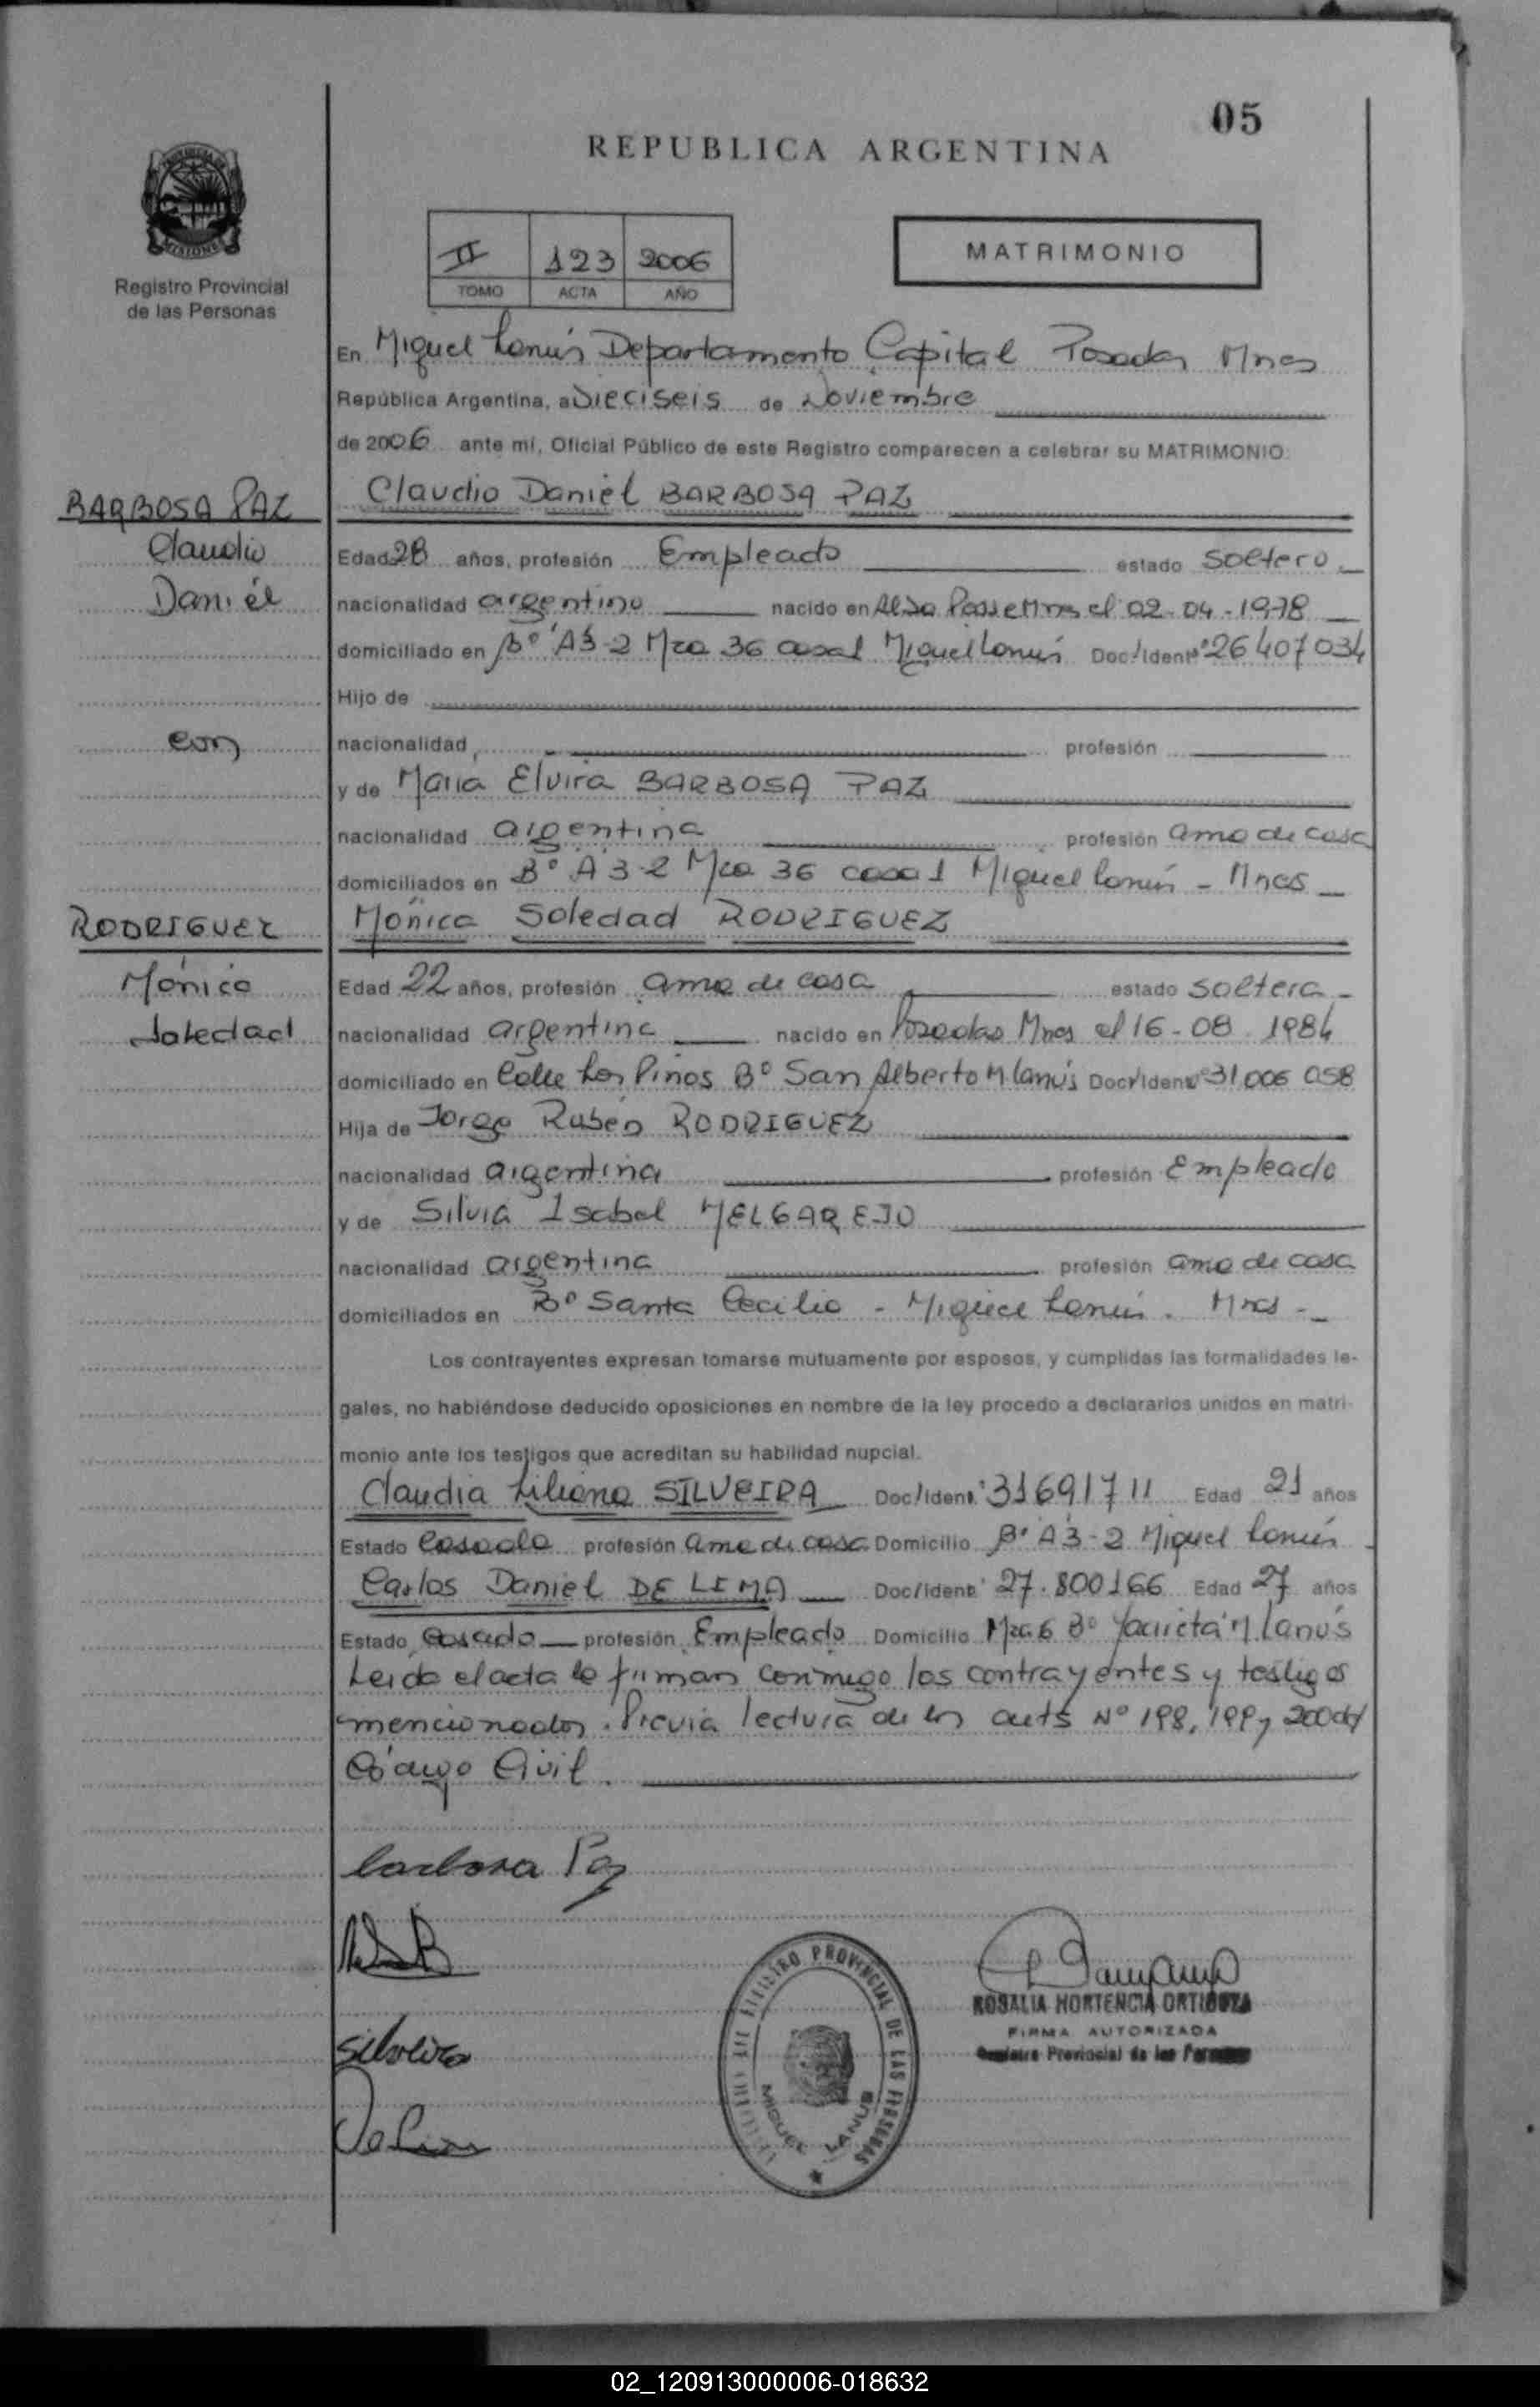 05
REPUBLICA ARGENTINA
PROVINCIA DE
MISIONES
Registro Provincial
de las Personas
II 123 2006
TOMO ACTA AÑO
MATRIMONIO
En Miguel Lanús Departamento Capital Posadas Mnes
República Argentina, a Dieciseis de Noviembre
de 2006 ante mí, Oficial Público de este Registro comparecen a celebrar su MATRIMONIO:
BARBOSA PAZ
Claudio Daniel BARBOSA PAZ
Claudio
Edad 28 años, profesión Empleado estado Soltero
Daniel
nacionalidad argentino nacido en Mnes el 02-04-1978
domiciliado en Bº A3-2 Mza 36 casa 1 Miguel Lanús Doc/Ident 26407034
Hijo de
con
nacionalidad profesión
y de Maria Elvira BARBOSA PAZ
nacionalidad argentina profesión ama de casa
domiciliados en Bº A 3-2 Mza 36 casa 1 Miguel Lanús - Mnes
RODRIGUEZ
Mónica Soledad RODRIGUEZ
Mónica
Edad 22 años, profesión ama de casa estado Soltera
Soledad
nacionalidad argentina nacido en Posadas Mnes el 16-08-1984
domiciliado en Calle Los Pinos Bº San Alberto M Lanús Doc/Ident 31.006 058
Hija de Jorge Rubén RODRIGUEZ
nacionalidad argentina profesión Empleado
y de Silvia Isabel MELGAREJO
nacionalidad argentina profesión ama de casa
domiciliados en Bº Santa Cecilia - Miguel Lanús. Mnes -
Los contrayentes expresan tomarse mutuamente por esposos, y cumplidas las formalidades le-
gales, no habiéndose deducido oposiciones en nombre de la ley procedo a declararlos unidos en matri-
monio ante los testigos que acreditan su habilidad nupcial.
Claudia Liliana SILVEIRA Doc/Ident. 31691711 Edad 21 años
Estado Casada profesión ama de casa Domicilio Bº A3-2 Miguel Lanús
Carlos Daniel DE LIMA Doc/Ident. 27.800166 Edad 27 años
Estado Casado profesión Empleado Domicilio Mza 6 Bº Yacireta M Lanús
Leída el acta la firman conmigo los contrayentes y testigos
mencionados. Previa lectura de los arts Nº 198, 199 y 200 del
Código Civil.
Barbosa Paz
Silveira
De Lima
REGISTRO PROVINCIAL DE LAS PERSONAS
MIGUEL LANUS
ROSALIA HORTENCIA ORTIGOZA
FIRMA AUTORIZADA
Registro Provincial de las Personas
02_120913000006-018632